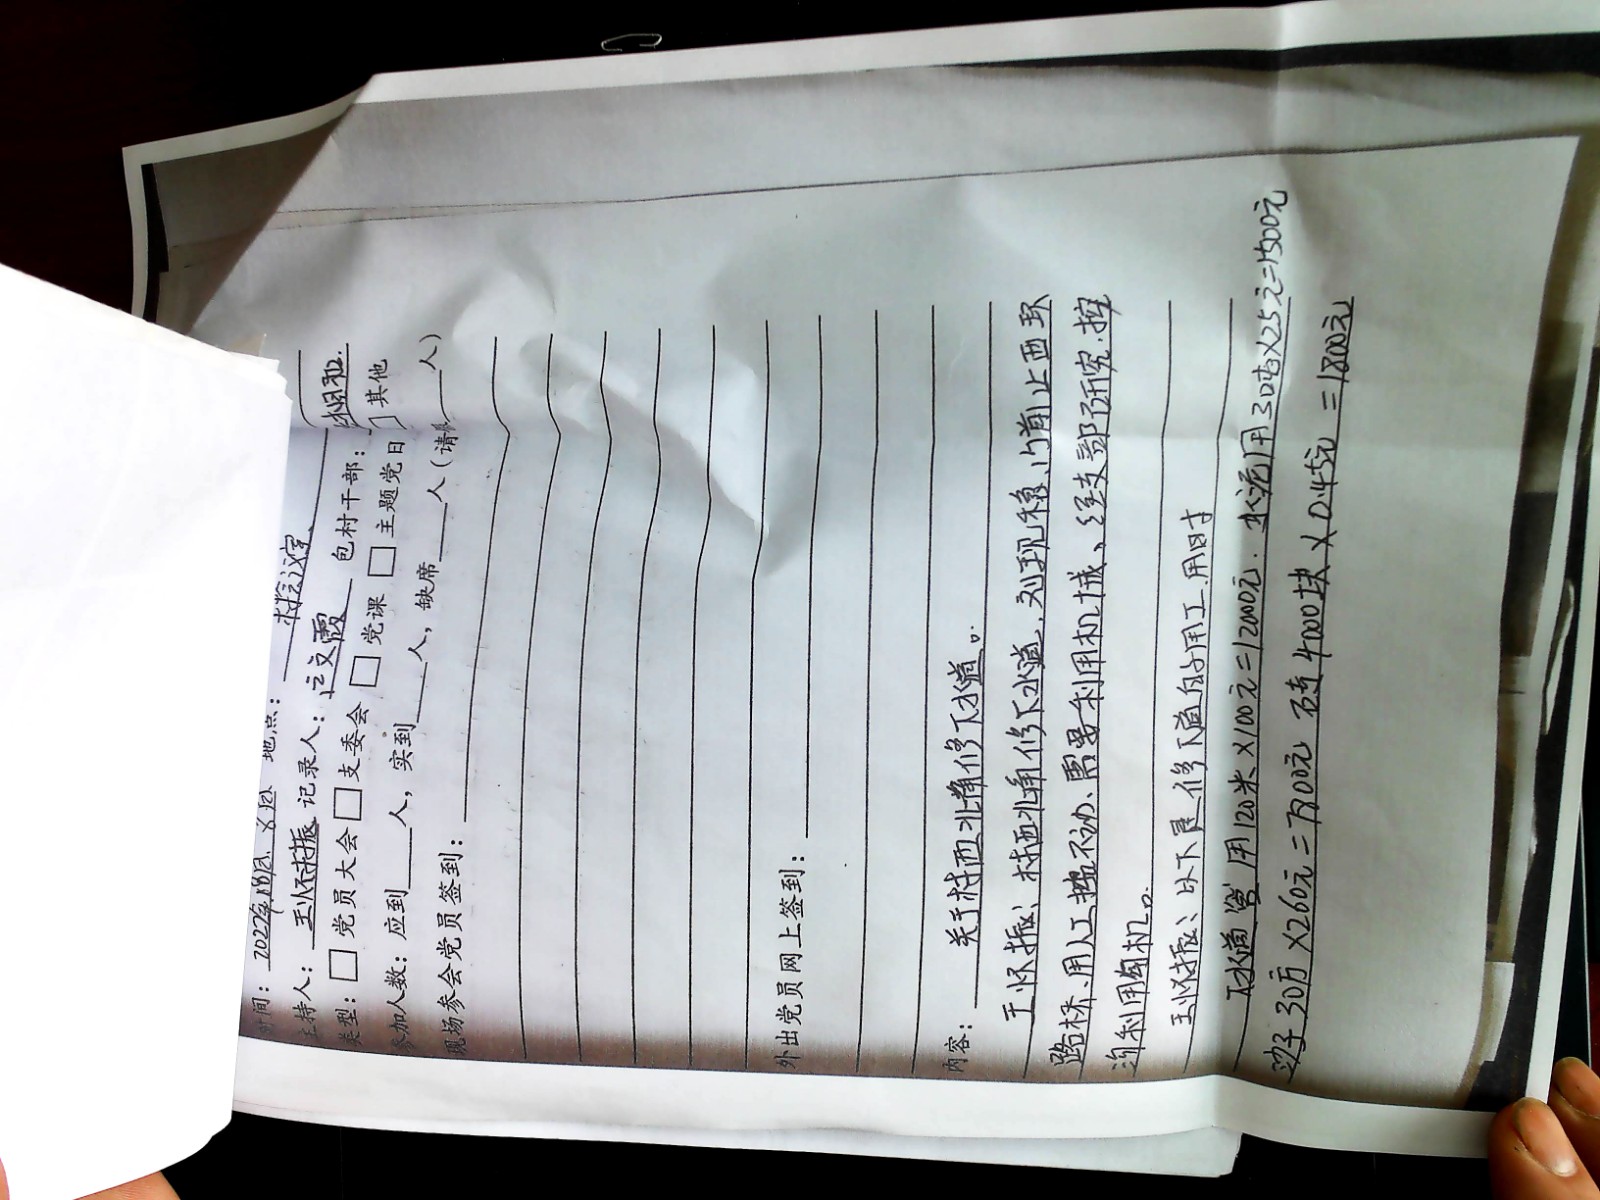 时间：2022年8月8日 地点：村会议室
主持人：王怀振 记录人：文霞 包村干部：
类型：□党员大会□支委会□党课□主题党日 其他
参加人数：应到 人，实到 人，缺席 人（请 人）
现场参会党员签到：
外出党员网上签到：
内容：关于村西北角修下水道。
王怀振：村西北角修下水道，刘现稳、门前止西环
路桥、用人工挖不动、需要利用机械、经支部研究.挖
沟利用钩机。
王怀振：以下是修下道的用工用时
下水道管用120米×100元=12000元. 水泥用30吨×25元=7500元
沙子30方×260元=7800元 石专4000块×0.45元=1800元